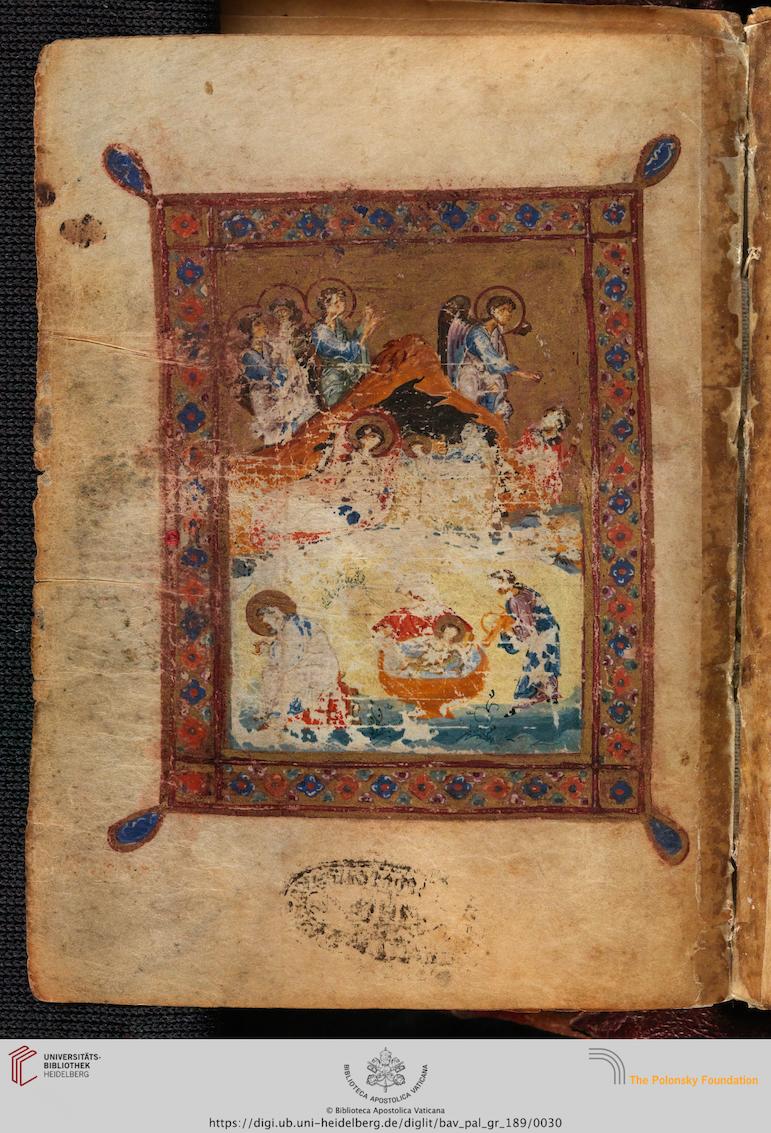 UNIVERSITÄTS-
BIBLIOTHEK
HEIDELBERG
BIBLIOTECA APOSTOLICA VATICANA
The Polonsky Foundation
© Biblioteca Apostolica Vaticana
https://digi.ub.uni-heidelberg.de/diglit/bav_pal_gr_189/0030